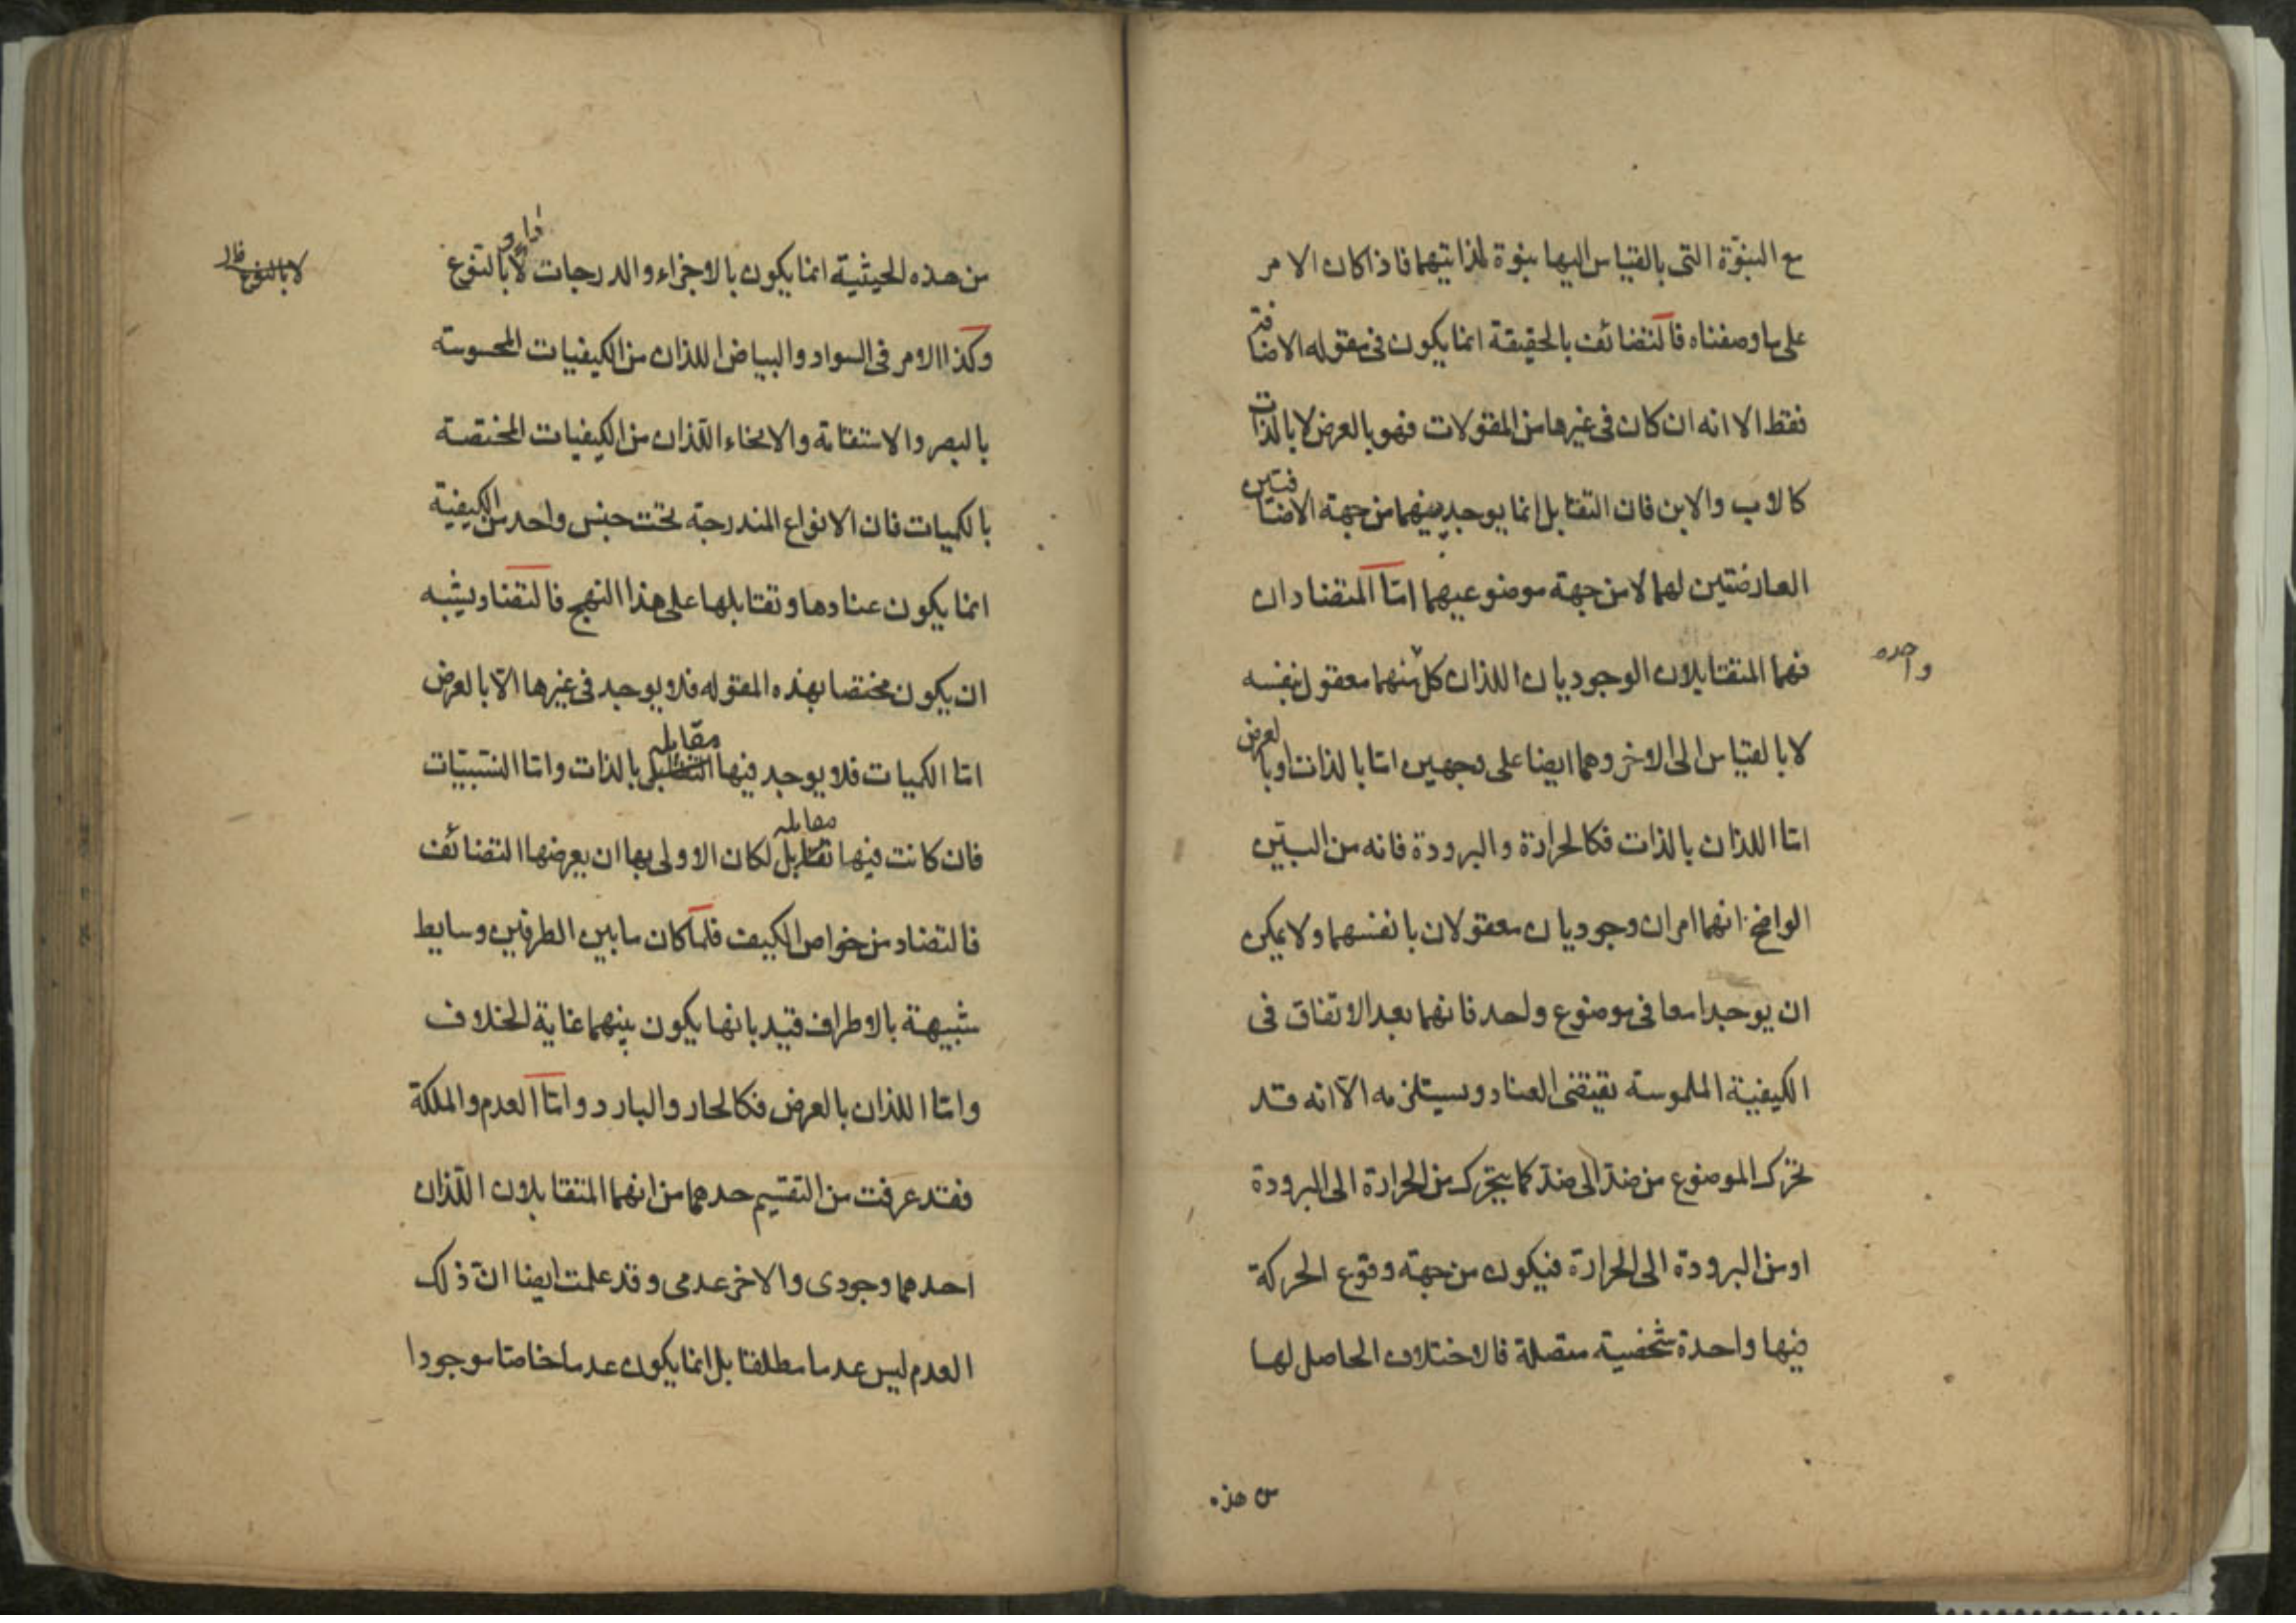 مع البنوّة التى بالقياس اليها بنوة لذاتيهما فاذا كان الامر
على ما وصفناه فالتضائف بالحقيقة انما يكون فى مقوله الاضافة
فقط الا انه ان كان فى غيرها من المقولات فهو بالعرض لا بالذات
كالاب والابن فان التقابل انما يوجد بينهما من جهة الاضافتين
العارضتين لهما لا من جهة موضوعيهما امّا المتضادان
فهما المتقابلان الوجوديان اللذان كلّ منهما معقول بنفسه
واحده
لا بالقياس الى الاخر وهما ايضا على وجهين امّا بالذات او بالعرض
امّا اللذان بالذات فكالحرارة والبرودة فانه من البيّن
الواضح انهما امران وجوديان معقولان بانفسهما ولا يمكن
ان يوجدا معا فى موضوع واحد فانهما بعد الاتفاق فى
الكيفية الملموسة يقتضى العناد ويستلزمه الّا انه قد
تحرّك الموضوع من ضدّ الى ضدّ كما يتحرّك من الحرارة الى البرودة
او من البرودة الى الحرارة فيكون من جهة وقوع الحركة
فيها واحدة شخصية متصلة فالاختلاف الحاصل لها
من هذه
من هذه الحيثية انما يكون بالاجزاء والدرجات لا بالنوع
لا بالنوع
وكذا الامر فى السواد والبياض اللذان من الكيفيات المحسوسة
بالبصر والاستقامة والانحناء اللّذان من الكيفيات المختصة
بالكميات فان الانواع المندرجة تحت جنس واحد من الكيفية
انما يكون عنادها وتقابلها على هذا النهج فالتضاد يشبه
ان يكون مختصا بهذه المقوله فلا يوجد فى غيرها الّا بالعرض
امّا الكميات فلا يوجد فيها مقابله بالذات وامّا النسبيّات
فان كانت فيها مقابله لكان الاولى بها ان يعرضها التضائف
فالتضاد من خواص الكيف فلمّا كان ما بين الطرفين وسايط
شبيهة بالاطراف قيد بانها يكون بينهما غاية الخلاف
وامّا اللذان بالعرض فكالحار والبارد وامّا العدم والملكة
فقد عرفت من التقسيم حدهما من انهما المتقابلان اللّذان
احدهما وجودى والاخر عدمى وقد علمت ايضا انّ ذلك
العدم ليس عدما مطلقا بل انما يكون عدما خاصّا موجودا